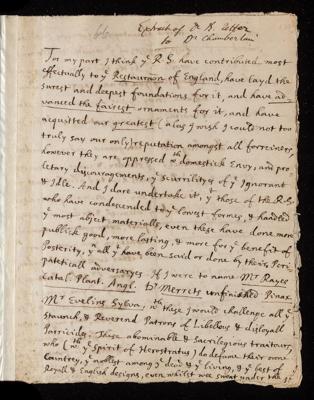 66
Extract of Dr B. letter
to Dr Chamberlain
For my part I think ye R. S. have contributed most
effectually to ye Restauration of England, have layd the
surest and deepest foundations for it, and have ad-
vanced the fairest ornaments for it, and have
acquitted our greatest (alas I wish I could not too
truly say our only) reputation amongst all forreiners,
however they are oppressed wth domestick Envy, and pro-
letary discouragements, ye scurrility of ye Ignorant
& Idle. And I dare undertake it, yt those of the R. S.
who have condescended to ye lowest formes, & handled
ye most abject materialls, even these have done more
publick good, more lasting, & more for ye benefit of
Posterity, yn all yt have been said or done by their Peri-
pateticall adversaryes. If I were to name Mr Rayes
Catal. Plant. Angl. Dr Merrets unfinished Pinax
Mr Evelins Sylva, wth these I would challenge all ye
Staunch, & Reverend Patrons of Libellous & disloyall
Parricides. These abominable & Sacrilegious traitours,
who (wth ye Spirit of Herostratus) do defame their owne
Countrey, ye noblest among ye dead & ye living, & ye best of
Royall & English designs, even whilst wee sweat under the